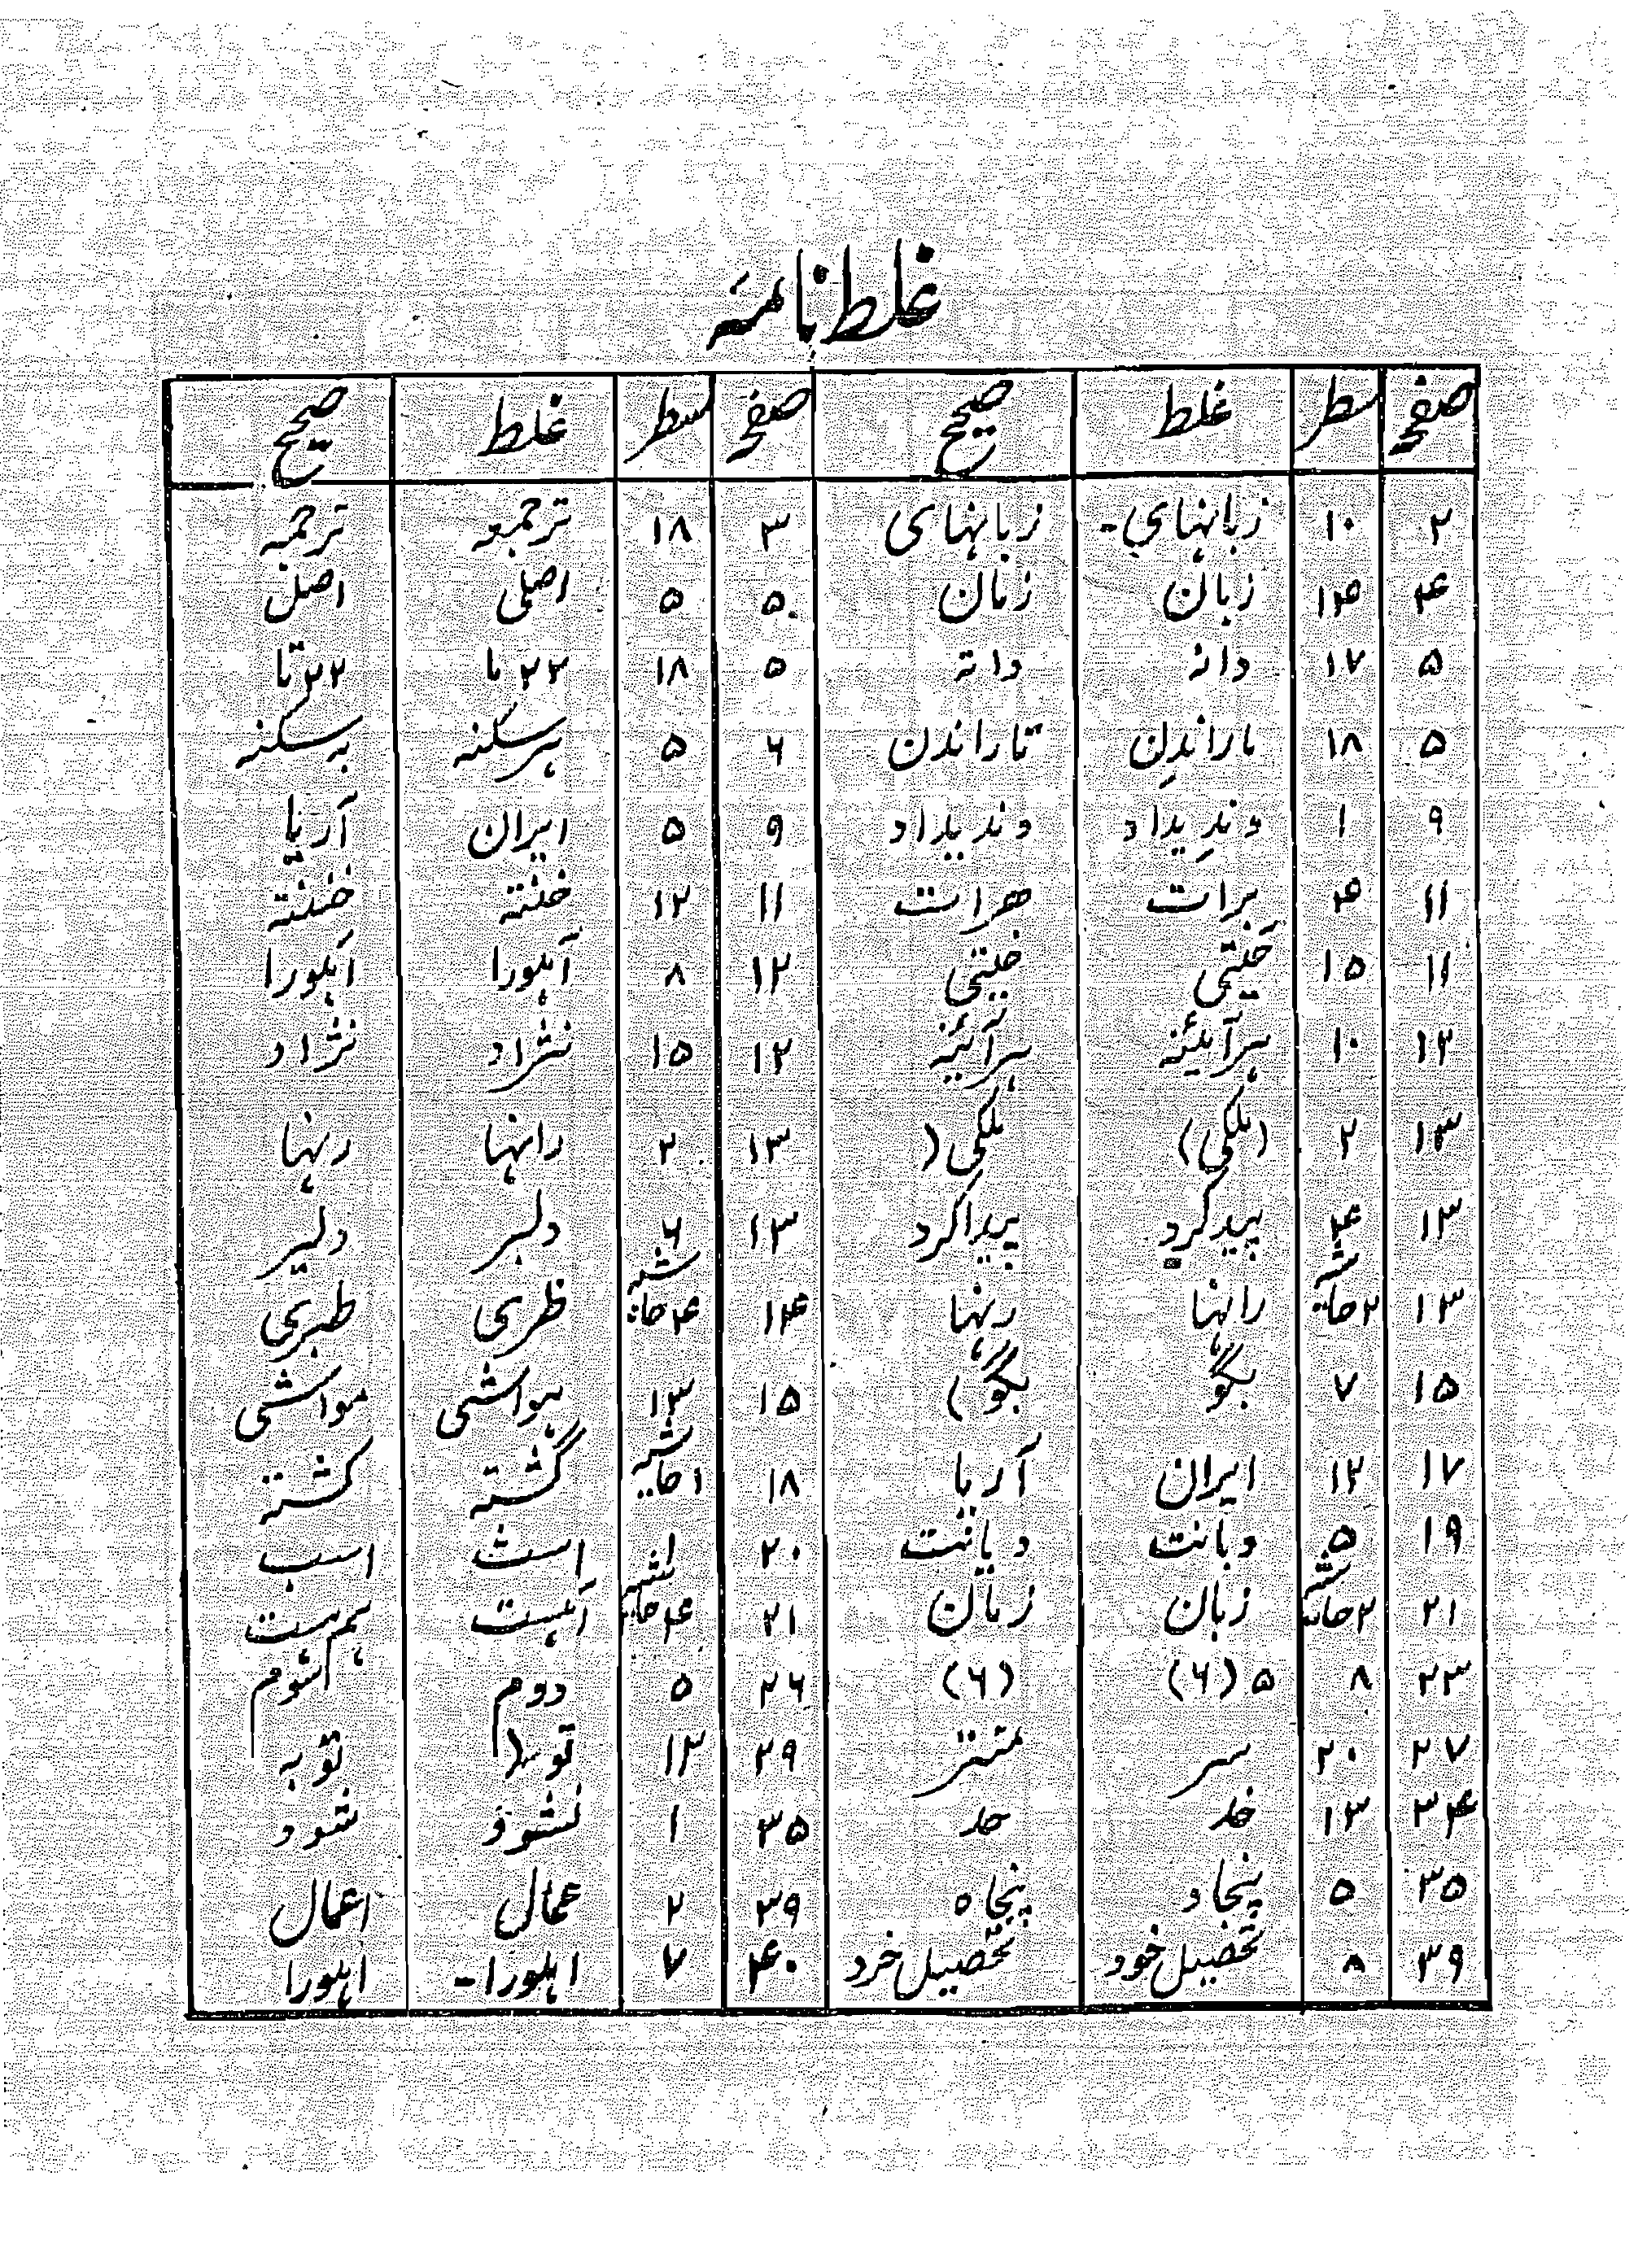 غلط نامه
صفحه سطر غلط صحیح صفحه سطر غلط صحیح
۲ ۱۰ زبانهای- زبانهای ۳ ۱۸ ترجمه ترجمہ
۴ ۱۴ زبان زمان ۵ ۵ اصلی اصل
۵ ۱۷ دانه داته ۵ ۱۸ ۲۲ با ۲۲ تا
۵ ۱۸ باراندن تاراندن ۶ ۵ هرسکنه به سکنه
۹ ۱ وندیداد وندیداد ۹ ۵ ایران آریا
۱۱ ۴ برات هرات ۱۱ ۱۲ خننته
۱۱ ۱۵ خنتی ۱۲ ۸ آهورا اهورا
۱۲ ۱۰ هرآیئنه هرآئینه ۱۲ ۱۵ نثراد نژاد
۱۳ ۲ (بلکی) بلکی( ۱۳ ۲ رانها رنها
۱۳ ۴ پیدکرد پیداکرد ۱۳ ۶ دلبر دلیر
۱۳ ۲حاشیه رانها رنها ۱۴ ۴حاشیه ظری طبری
۱۵ ۷ بگو بگو) ۱۵ ۱۳ هواشی مواشی
۱۷ ۱۲ ایران آریا ۱۸ ۱حاشیه گشته کشته
۱۹ ۵ دبانت دیانت ۲۰ است اسب
۲۱ ۲حاشیه زبان زمان ۲۱ ۴حاشیه اهست هم هست
۲۳ ۸ ۵ (۶) (۶) ۲۶ ۵ دوم اشوم
۲۷ ۲۰ سر ۲۹ ۱۳ توبه
۳۴ ۱۳ خد حد ۳۵ ۱ نشود شود
۳۵ ۵ پنجاد پنجاه ۳۹ ۲ عمال اعمال
۳۹ ۸ تحصیل خود تحصیل خرد ۴۰ ۷ اهورا- اهورا